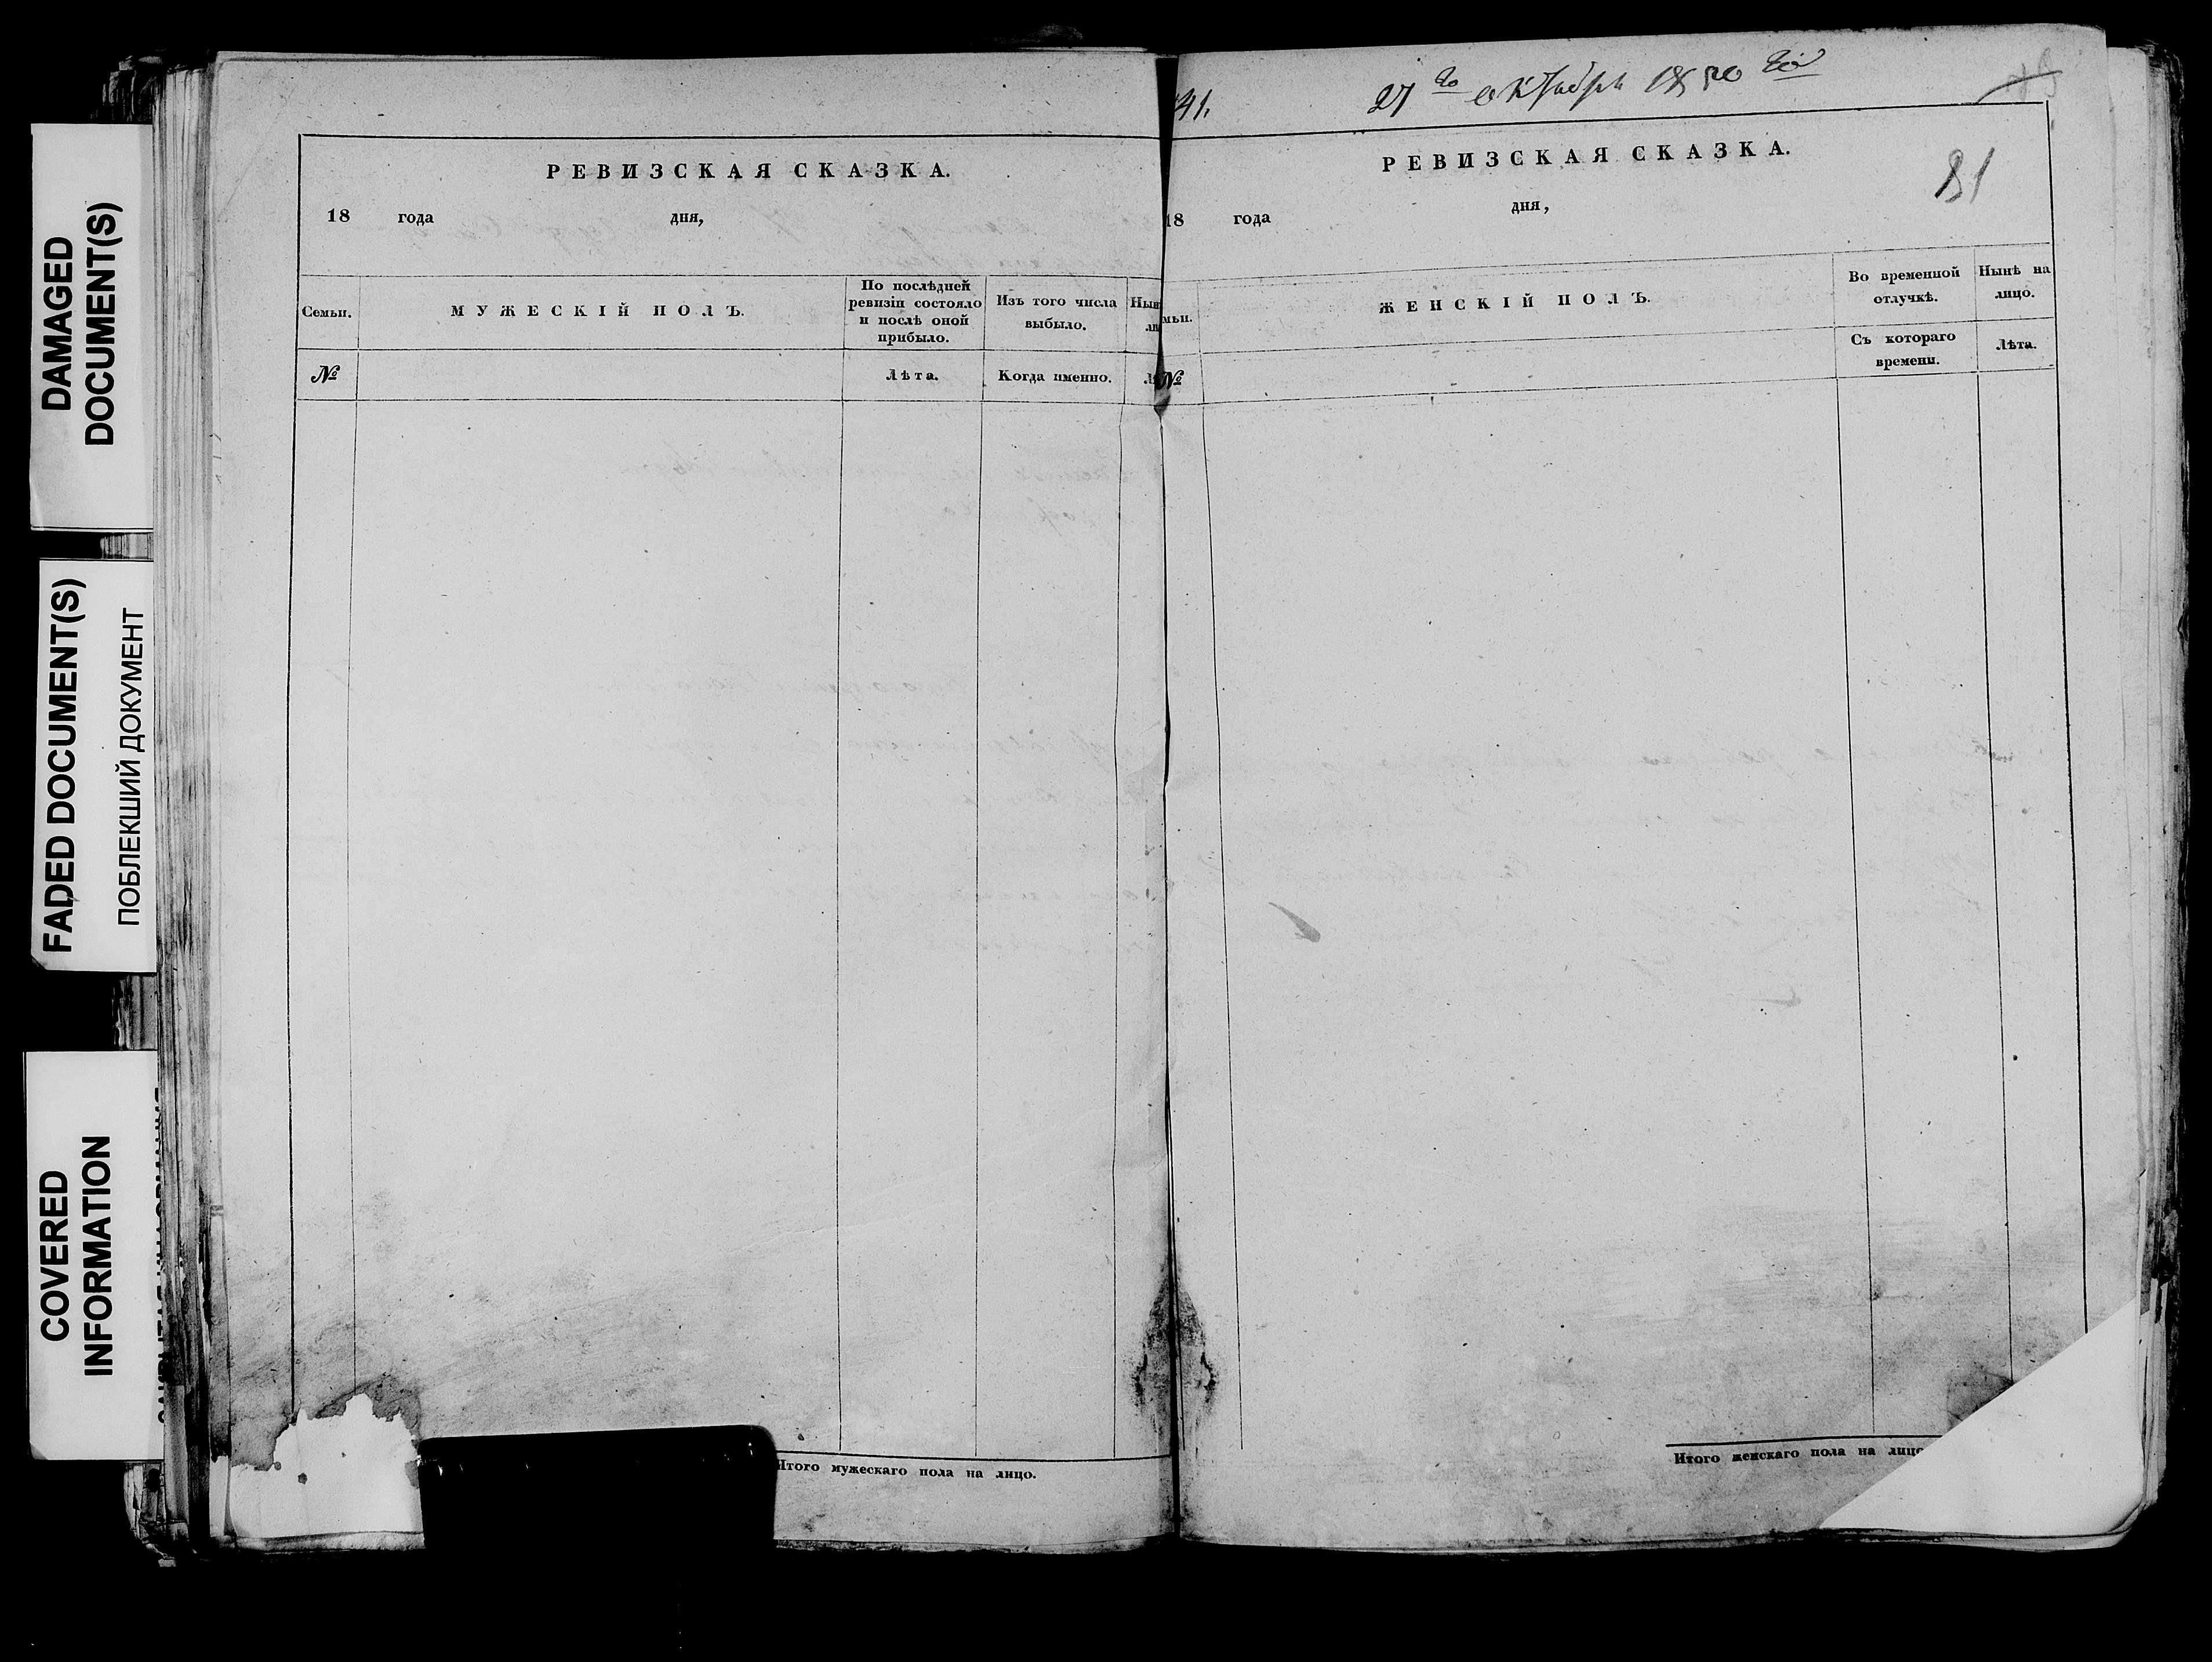 DAMAGED
DOCUMENT(S)
FADED DOCUMENT(S)
ПОБЛЕКШИЙ ДОКУМЕНТ
COVERED
INFORMATION
РЕВИЗСКАЯ СКАЗКА.
18 года дня,
Семьи.
МУЖЕСКІЙ ПОЛЪ.
По послѣдней
ревизіи состояло
и послѣ оной
прибыло.
Изъ того числа
выбыло.
Нын
ли
№
Лѣта.
Когда именно.
Итого мужескаго пола на лицо.
41.
27 го октября 1850 го
81
РЕВИЗСКАЯ СКАЗКА.
18 года дня,
мьи.
ЖЕНСКІЙ ПОЛЪ.
Во временной
отлучкѣ.
Нынѣ на
лицо.
№
Съ котораго
времени.
Лѣта.
Итого женскаго пола на лицо